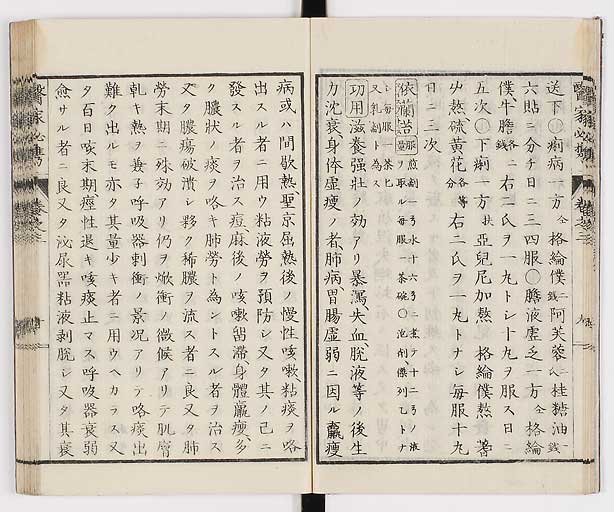 送下〇痢病一方 仝 格綸僕 二 阿芙蓉 二 桂糖油 一銭
六貼ニ分チ日ニ三四服〇膽液虚乏一方 仝 格綸
僕牛膽 各二銭 右二氏ヲ一丸トシ十丸ヲ服ス日ニ
五次〇下劑一方 扶 亞兒尼加熱 格綸僕熱 蓍
灼熱硫黄花 各等分 右二氏ヲ一丸トナシ毎服十丸
日ニ二三次
依蘭苔
功用滋養強壮ノ効アリ暴瀉失血脱液等ノ後生
力沈衰身体虚痩ノ者肺病胃腸虚弱ニ因ル羸痩
病或ハ間歇熱聖京屈熱後ノ慢性咳嗽粘痰ヲ咯
出スル者ニ用ウ粘液勞ヲ預防シ又タ其ノ已ニ
發スル者ヲ治ス痘麻後ノ咳嗽畄滞身體羸瘦多
ク膿状ノ痰ヲ咯キ肺勞ト為ントスル者ヲ治ス
又タ膿瘍破潰シ夥ク稀膿ヲ流ス者ニ良又タ肺
勞末期ニ殊効アリ仍ヲ焮衝ノ徴候アリテ肌膚
乾キ熱ヲ發シ呼吸器刺衝ノ景况アリテ咯痰出
難ク出ルモ亦タ其量少キ者ニ用ウヘカラス又
タ百日咳末期痙性退キ咳痰止マス呼吸器衰弱
愈サル者ニ良又タ泌尿器粘液剥脱シ又タ其衰